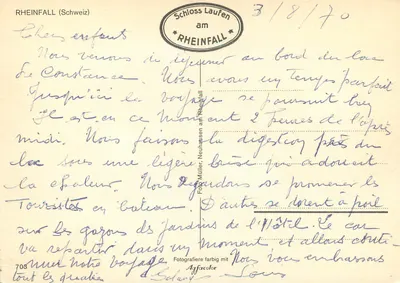 RHEINFALL (Schweiz)
Schloss Laufen
am
*RHEINFALL*
3/8/70
Chers enfants
Nous venons de déjeuner au bord du lac
de Constance. Nous avons un temps parfait
Jusqu'ici le voyage se poursuit bien
Il est en ce moment 2 heures de l'après
midi. Nous faisons la digestion près du
lac sous une légère brise qui adoucit
la chaleur. Nous regardons se promener les
Touristes en bateau. D'autres se dorent à poil
sur les gazons des jardins de l'Hôtel. Le car
va repartir dans un moment et allons conti-
nuer notre voyage. Nous vous embrassons
tout les quatre
Foto Müller, Neuhausen am Rheinfall
Fotografiere farbig mit
Agfacolor